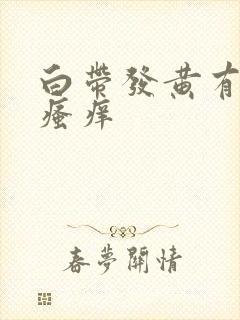 白帶發黄有
瘙痒
春夢關情